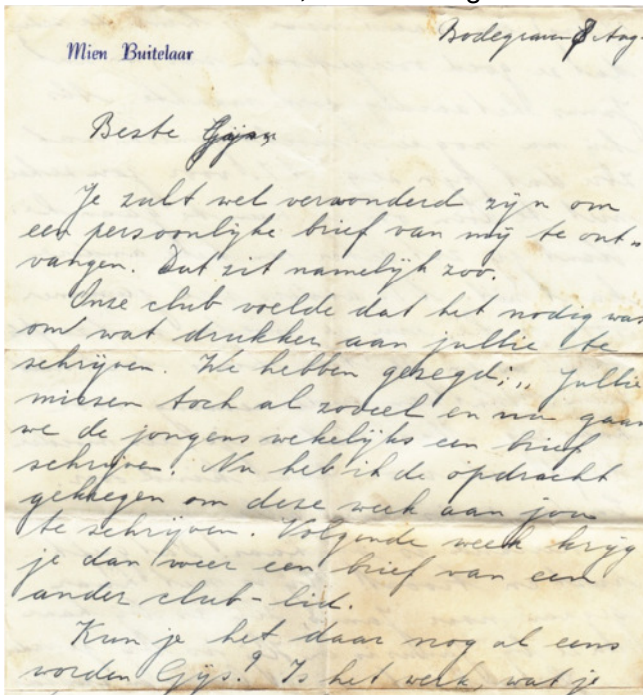 Bodegraven 8 Aug.
Mien Buitelaar
Beste Gijs,
Je zult wel verwonderd zijn om
een persoonlijke brief van mij te ont„
vangen. Dat zit namelijk zoo.
Onze club voelde dat het nodig was
om wat drukker aan jullie te
schrijven. We hebben gezegd; „ Jullie
missen toch al zoveel en nu gaan
we de jongens wekelijks een brief
schrijven. Nu heb ik de opdracht
gekregen om deze week aan jou
te schrijven. Volgende week krijg
je dan weer een brief van een
ander club-lid.
Kun je het daar nog al eens
worden Gijs.? Is het werk, wat je